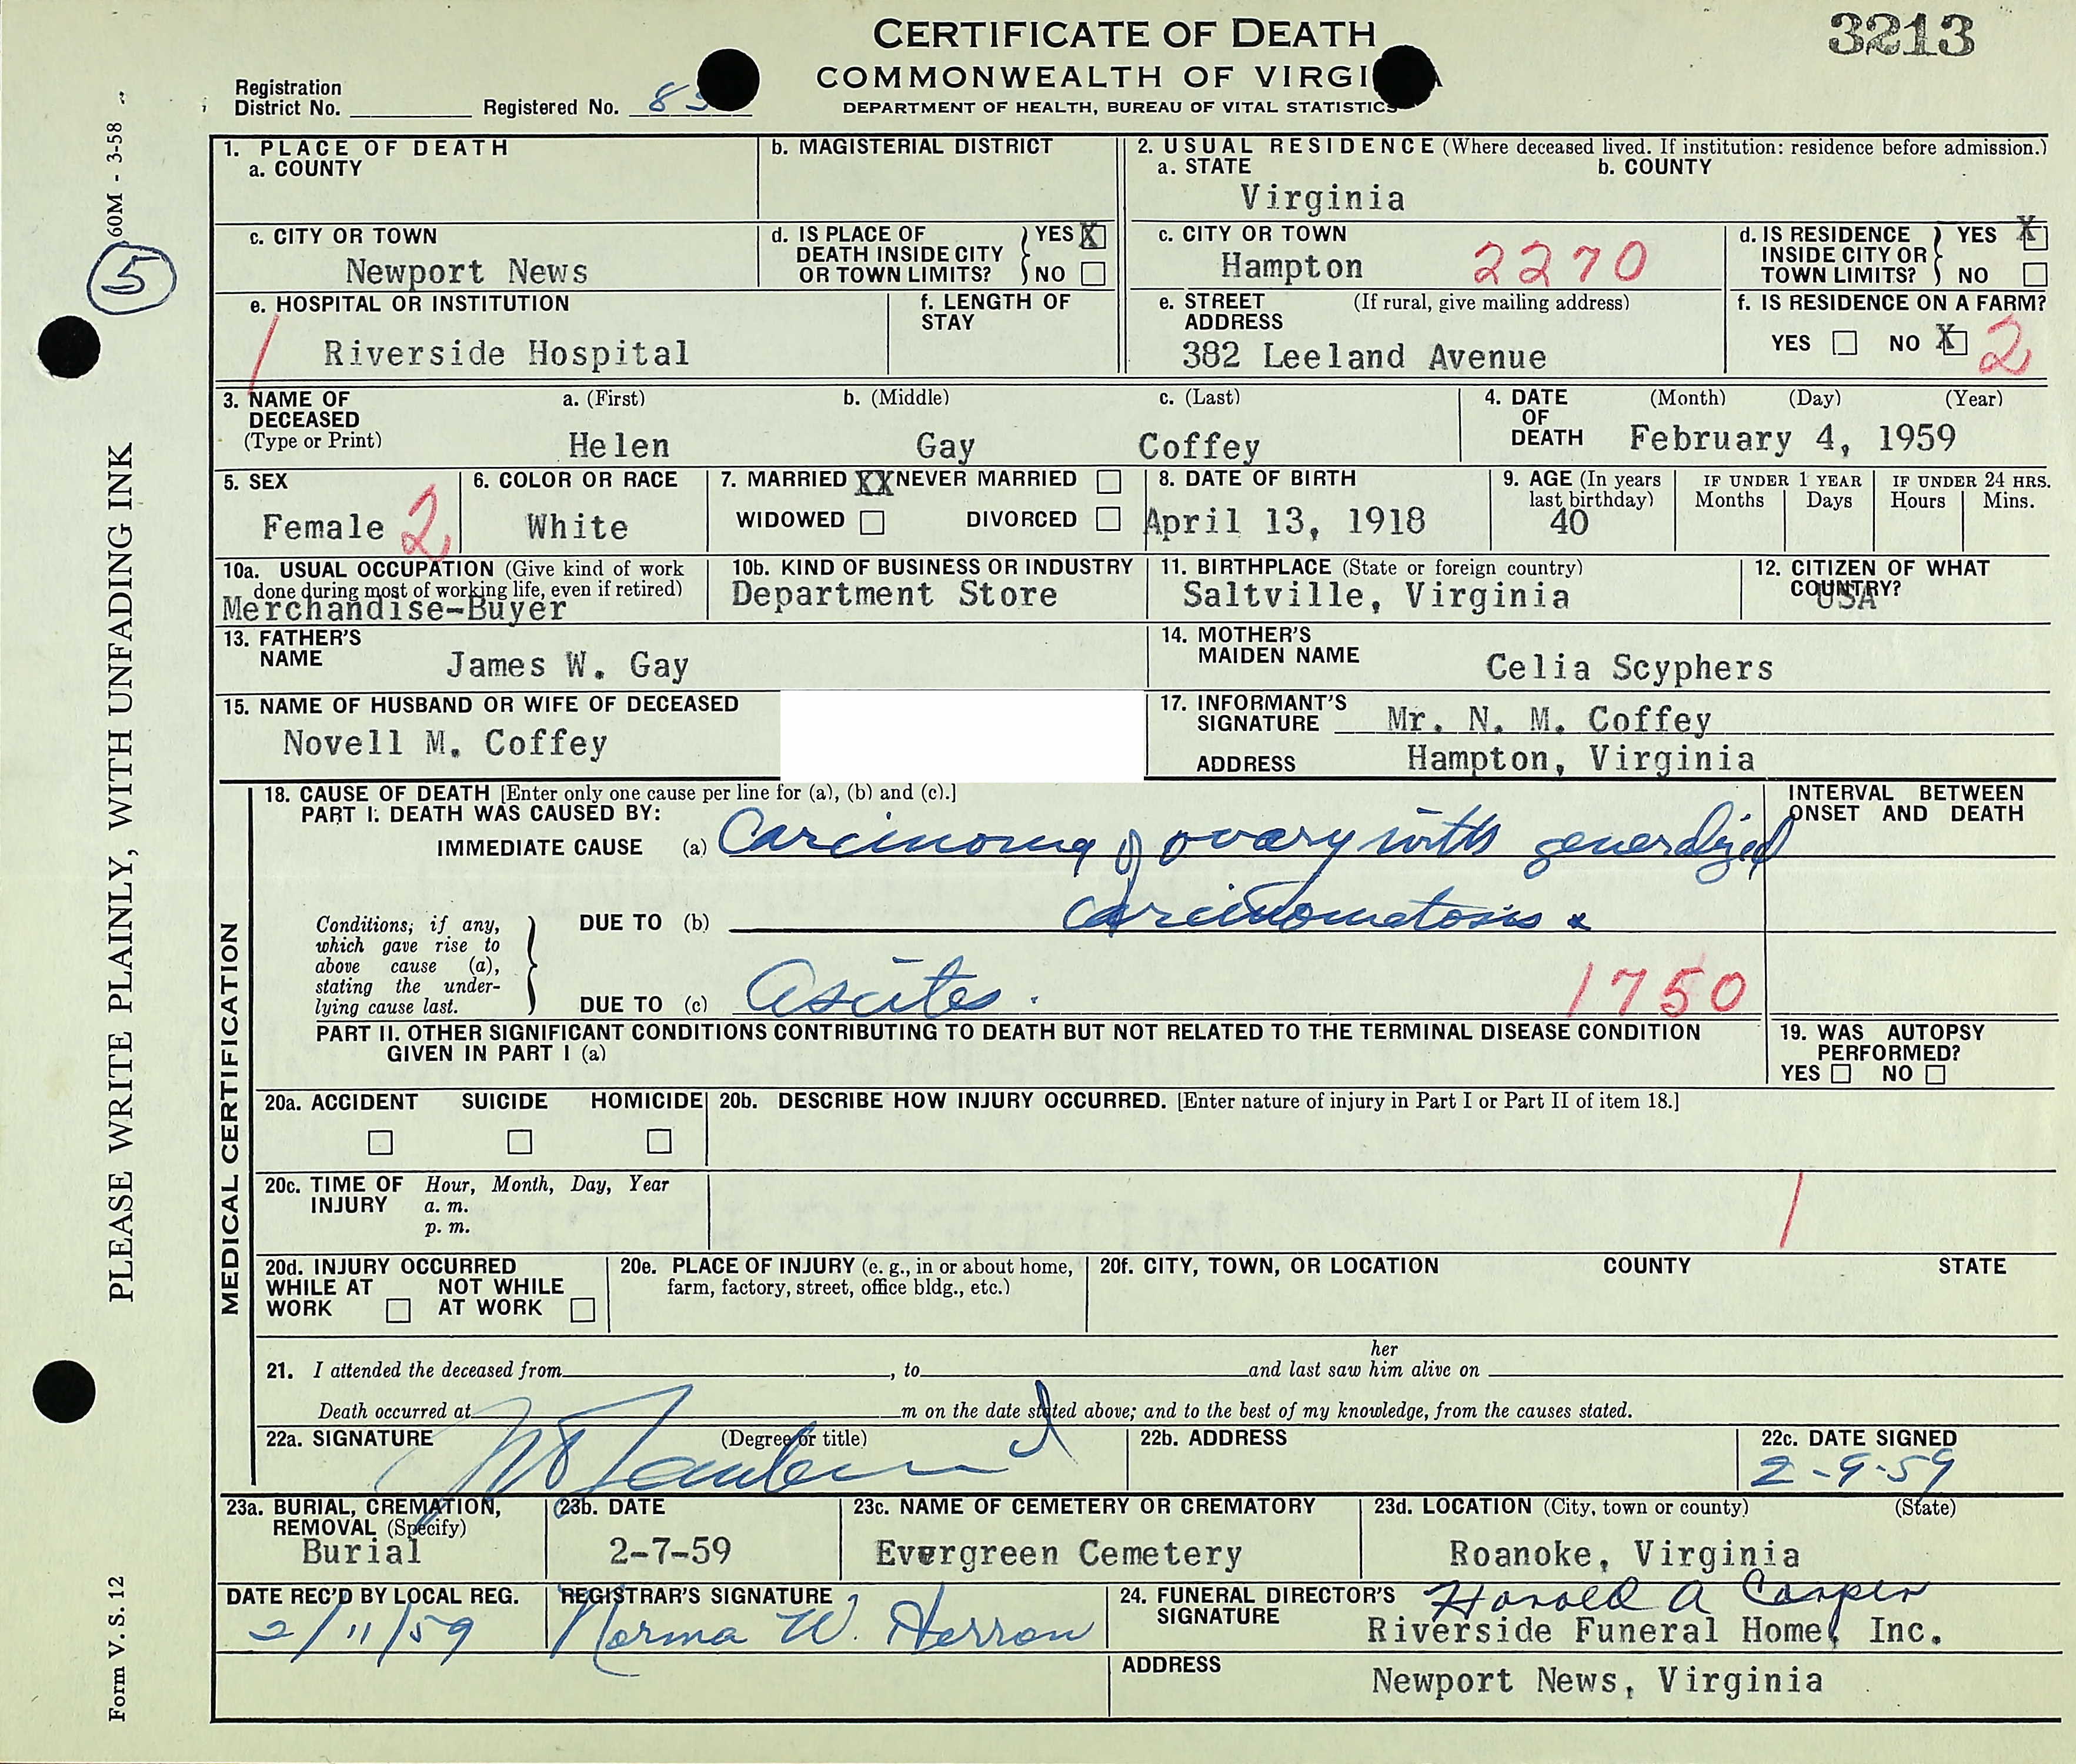 CERTIFICATE OF DEATH
3213
COMMONWEALTH OF VIRGI A
DEPARTMENT OF HEALTH, BUREAU OF VITAL STATISTICS
Registration
District No. Registered No. 85
60M - 3-58
5
PLEASE WRITE PLAINLY, WITH UNFADING INK
Form V. S. 12
1. PLACE OF DEATH
a. COUNTY
b. MAGISTERIAL DISTRICT
2. USUAL RESIDENCE (Where deceased lived. If institution: residence before admission.)
a. STATE b. COUNTY
Virginia
c. CITY OR TOWN
Newport News
d. IS PLACE OF DEATH INSIDE CITY OR TOWN LIMITS? YES X NO
c. CITY OR TOWN
Hampton 2270
d. IS RESIDENCE INSIDE CITY OR TOWN LIMITS? YES X NO
e. HOSPITAL OR INSTITUTION
1 Riverside Hospital
f. LENGTH OF STAY
e. STREET ADDRESS (If rural, give mailing address)
382 Leeland Avenue
f. IS RESIDENCE ON A FARM?
YES NO X 2
3. NAME OF DECEASED (Type or Print)
a. (First) b. (Middle) c. (Last)
Helen Gay Coffey
4. DATE OF DEATH (Month) (Day) (Year)
February 4, 1959
5. SEX
Female 2
6. COLOR OR RACE
White
7. MARRIED XX NEVER MARRIED
WIDOWED DIVORCED
8. DATE OF BIRTH
April 13, 1918
9. AGE (In years last birthday)
40
IF UNDER 1 YEAR
Months Days
IF UNDER 24 HRS.
Hours Mins.
10a. USUAL OCCUPATION (Give kind of work done during most of working life, even if retired)
Merchandise-Buyer
10b. KIND OF BUSINESS OR INDUSTRY
Department Store
11. BIRTHPLACE (State or foreign country)
Saltville, Virginia
12. CITIZEN OF WHAT COUNTRY?
USA
13. FATHER'S NAME
James W. Gay
14. MOTHER'S MAIDEN NAME
Celia Scyphers
15. NAME OF HUSBAND OR WIFE OF DECEASED
Novell M. Coffey
17. INFORMANT'S SIGNATURE Mr. N. M. Coffey
ADDRESS Hampton, Virginia
MEDICAL CERTIFICATION
18. CAUSE OF DEATH [Enter only one cause per line for (a), (b) and (c).]
PART I. DEATH WAS CAUSED BY:
INTERVAL BETWEEN ONSET AND DEATH
IMMEDIATE CAUSE (a) Carcinoma of ovary with generalized
Conditions, if any, which gave rise to above cause (a), stating the underlying cause last.
DUE TO (b) Carcinomatosis &
DUE TO (c) ascites. 1750
PART II. OTHER SIGNIFICANT CONDITIONS CONTRIBUTING TO DEATH BUT NOT RELATED TO THE TERMINAL DISEASE CONDITION
GIVEN IN PART I (a)
19. WAS AUTOPSY PERFORMED?
YES NO
20a. ACCIDENT SUICIDE HOMICIDE
20b. DESCRIBE HOW INJURY OCCURRED. [Enter nature of injury in Part I or Part II of item 18.]
20c. TIME OF INJURY Hour, Month, Day, Year
a. m.
p. m.
1
20d. INJURY OCCURRED
WHILE AT WORK NOT WHILE AT WORK
20e. PLACE OF INJURY (e. g., in or about home, farm, factory, street, office bldg., etc.)
20f. CITY, TOWN, OR LOCATION COUNTY STATE
her
21. I attended the deceased from , to and last saw him alive on
Death occurred at m on the date stated above; and to the best of my knowledge, from the causes stated.
22a. SIGNATURE (Degree or title)
22b. ADDRESS
22c. DATE SIGNED
2-9-59
23a. BURIAL, CREMATION, REMOVAL (Specify)
Burial
23b. DATE
2-7-59
23c. NAME OF CEMETERY OR CREMATORY
Evergreen Cemetery
23d. LOCATION (City, town or county) (State)
Roanoke, Virginia
DATE REC'D BY LOCAL REG.
2/11/59
REGISTRAR'S SIGNATURE
Norma W. Herron
24. FUNERAL DIRECTOR'S SIGNATURE
Harold A Casper
Riverside Funeral Home, Inc.
ADDRESS
Newport News, Virginia